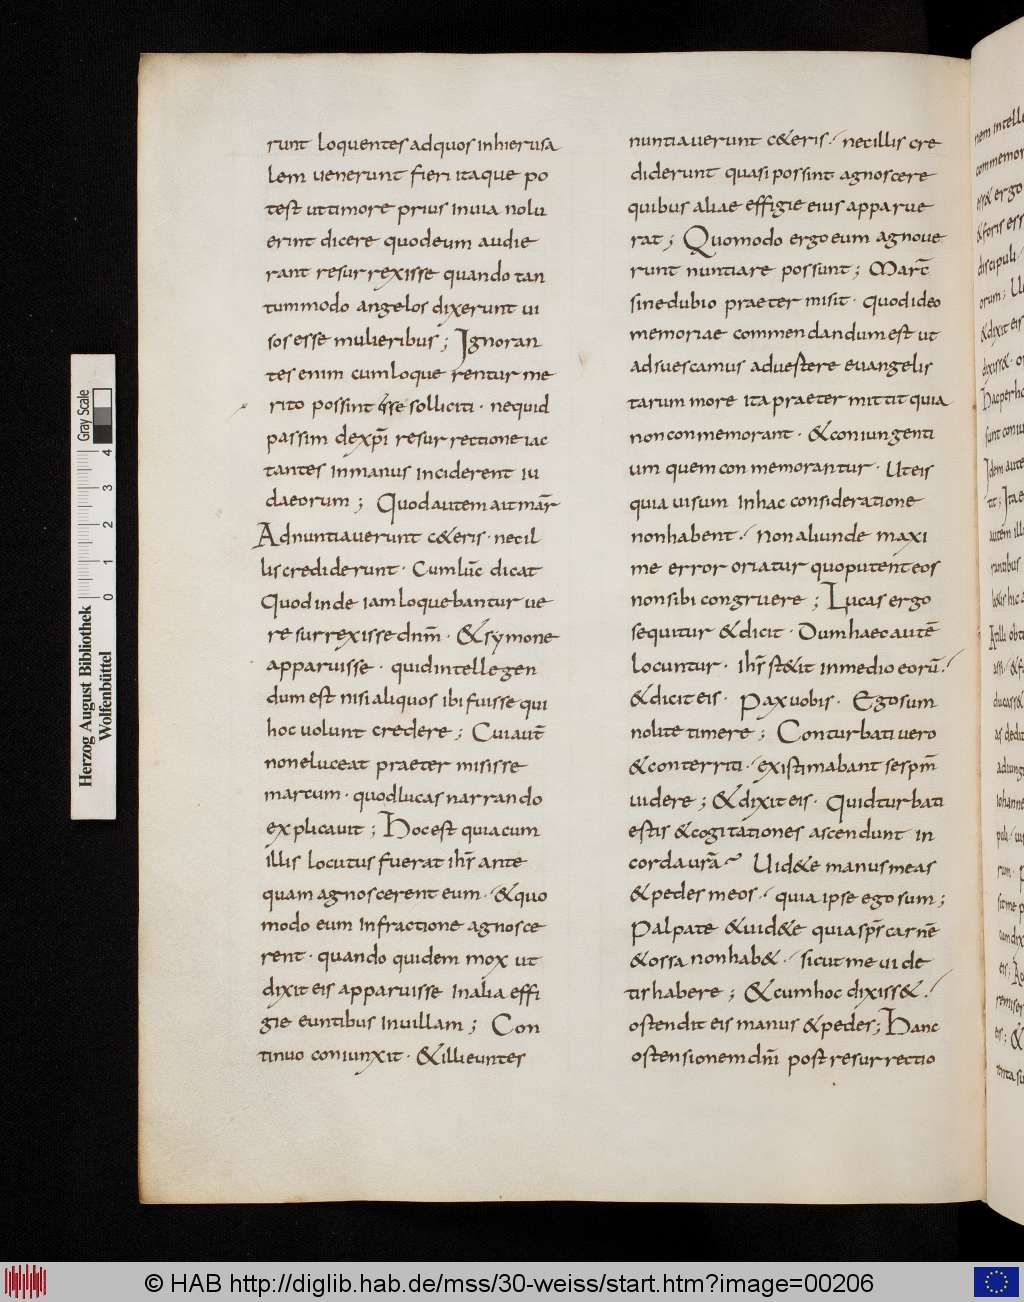 runt loquentes adquos inhierusa
lem uenerunt fieri itaque po
test uttimore prius inuia nolu
erint dicere quodeum audie
rant resurrexisse quando tan
tummodo angelos dixerunt ui
sos esse mulieribus ; Ignoran
tes enim cumloque rentur me
rito possint esse solliciti · nequid
passim dexp̄i resurrectione iac
tantes inmanus inciderent iu
daeorum ; Quodautem ait mār
Adnuntiauerunt c&eris · necil
lis crediderunt · Cumluc̄ dicat
Quodinde iamloquebantur ue
re surrexisse dnm̄ · &symone
apparuisse · quidintellegen
dum est nisi aliquos ibi fuisse qui
hoc uolunt credere ; Cuiaut̄
noneluceat praeter misisse
marcum · quodlucas narrando
explicauit ; Hocest quiacum
illis locutus fuerat ihs̄ ante
quam agnoscerent eum · &quo
modo eum infractione agnosce
rent · quando quidem mox ut
dixit eis apparuisse inalia effi
gie euntibus inuillam ; Con
tinuo coniunxit · &illieuntes
nuntiauerunt c&eris · necillis cre
diderunt quasi possint agnoscere
quibus aliae effigie eius apparue
rat ; Quomodo ergo eum agnoue
runt nuntiare possunt ; Marc̄
sinedubio praeter misit · quodideo
memoriae commendandum est ut
adsuescamus aduertere euangelis
tarum more ita praetermittit quia
nonconmemorant · &coniungenti
um quem conmemorantur · Uteis
quia uisum inhac consideratione
nonhabent · non aliunde maxi
me error oriatur quoputent eos
nonsibi congruere ; Lucas ergo
sequitur &dicit · Dumhaec autē
locuntur · ihs̄ st&it inmedio eorū ·
&dicit eis · Pax uobis · Ego sum
nolite timere ; Conturbati uero
&conterriti · existimabant se spm̄
uidere ; &dixit eis · Quidturbati
estis &cogitationes ascendunt in
corda urā Uid&e manus meas
&pedes meos · quia ipse ego sum ;
Palpate &uid&e quia sps̄ carnē
&ossa nonhab& · sicut me uide
tis habere ; &cumhoc dixiss& ·
ostendit eis manus &pedes ; Hanc
ostensionem dnī post resurrectio
Herzog August Bibliothek
Wolfenbüttel
Gray Scale
0 1 2 3 4
© HAB http://diglib.hab.de/mss/30-weiss/start.htm?image=00206